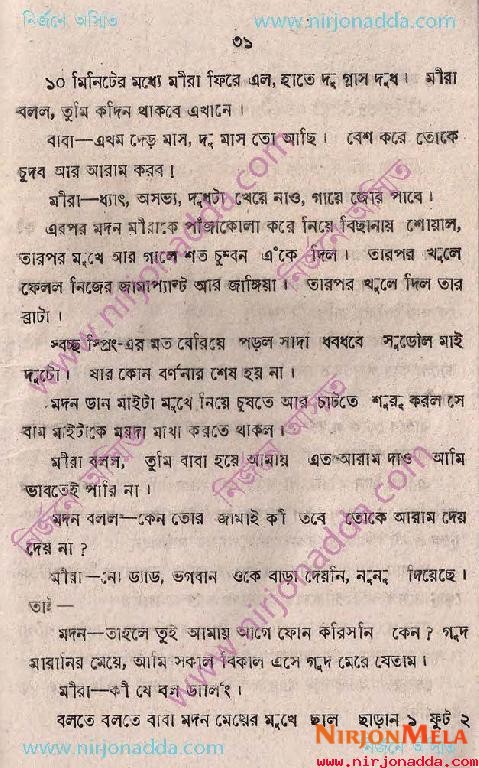 নির্জনে অস্মিত www.nirjonadda.com
৩১
১০ মিনিটের মধ্যে মীরা ফিরে এল, হাতে দু গ্লাস দুধ। মীরা
বলল, তুমি কদিন থাকবে এখানে।
বাবা—এখন দেড় মাস, দু মাস তো আছি। বেশ করে তোকে
চুদব আর আরাম করব।
মীরা—ধ্যাৎ, অসভ্য, দুধটা খেয়ে নাও, গায়ে জোর পাবে।
এরপর মদন মীরাকে পাঁজাকোলা করে নিয়ে বিছানায় শোয়াল,
তারপর মুখে আর গালে শত চুম্বন এঁকে দিল। তারপর খুলে
ফেলল নিজের জামাপ্যান্ট আর জাঙ্গিয়া। তারপর খুলে দিল তার
ব্রাটা।
স্বচ্ছ স্প্রিং-এর মত বেরিয়ে পড়ল সাদা ধবধবে সুডৌল মাই
দুটো। যার কোন বর্ণনার শেষ হয় না।
মদন ডান মাইটা মুখে নিয়ে চুষতে আর চাটতে শুরু করল সে
বাম মাইটাকে ময়দা মাখা করতে থাকল।
মীরা বলল, তুমি বাবা হয়ে আমায় এত আরাম দাও আমি
ভাবতেই পারি না।
মদন বলল—কেন তোর জামাই কী তবে তোকে আরাম দেয়
দেয় না?
মীরা—নো ড্যাড, ভগবান ওকে বাড়া দেয়নি, নুনু দিয়েছে।
তাই—
মদন—তাহলে তুই আমায় আগে ফোন করিসনি কেন? গুদ
মারানির মেয়ে, আমি সকাল বিকাল এসে গুদ মেরে যেতাম।
মীরা—কী যে বল ডার্লিং।
বলতে বলতে বাবা মদন মেয়ের মুখে ছাল ছাড়ান ১ ফুট ২
www.nirjonadda.com নির্জনে অস্মিত
www.nirjonadda.com
নির্জনে অস্মিত
নির্জনে অস্মিত
নির্জনে অস্মিত
www.nirjonadda.com
NIRJONMELA
www.nirjonadda.com